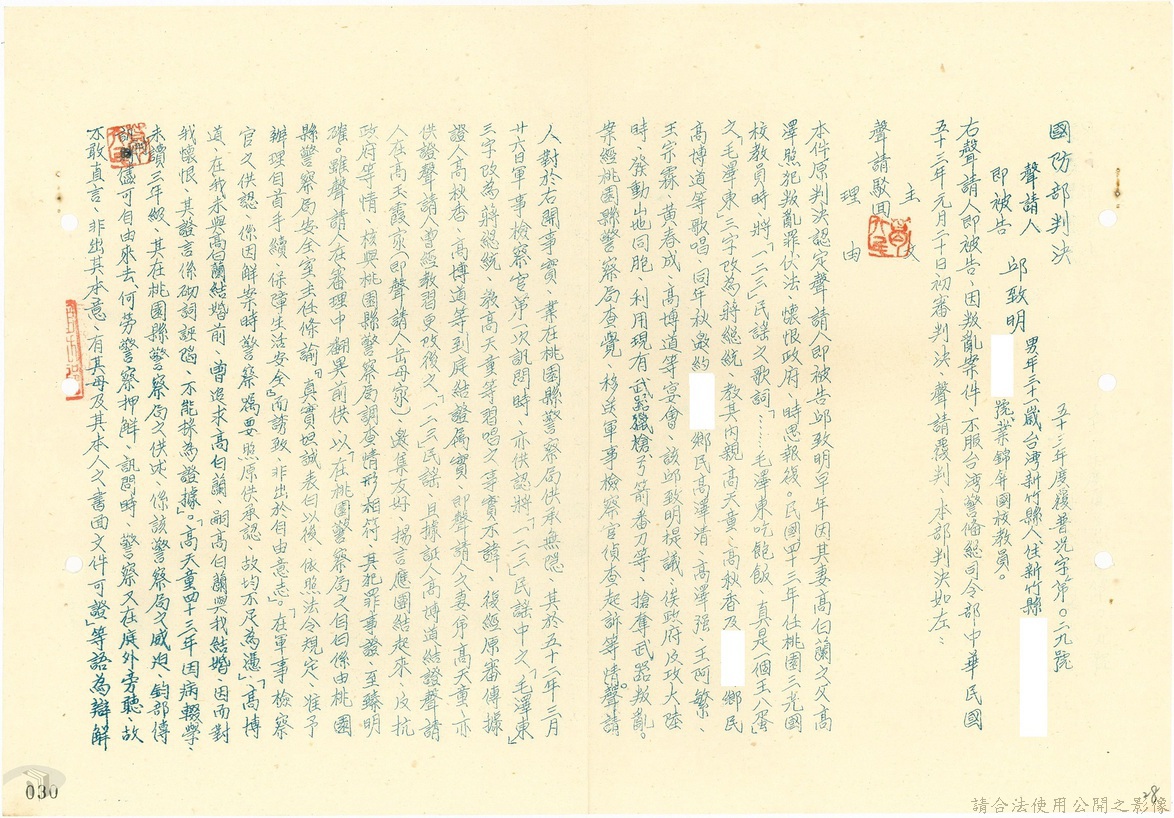 國防部判決
五十三年度覆普況字第〇二九號
聲請人
即被告 邱致明 男年三十一歲台灣新竹縣人住新竹縣
號業錦屏國校教員。
右聲請人即被告、因叛亂案件、不服台湾警備總司令部中華民國
五十三年元月二十日初審判決、聲請覆判、本部判決如左：
主 文
聲請駁回
理 由
本件原判決認定聲請人即被告邱致明早年因其妻高白蘭之父高
澤照犯叛亂罪伏法、懷恨政府、時思報復。民國四十三年任桃園三光國
校教員時、將「一二三」民謠之歌詞「……毛澤東吃飽飯、真是一個王八蛋」
之「毛澤東」三字改為蔣總統、教其內親高天童、高秋香及 鄉民
高博道等歌唱、同年秋邀約 鄉民高澤清、高澤强、王阿繁、
王宗霖、黄春成、高博道等宴會、該邱致明提議、俟政府反攻大陸
時、發動山地同胞、利用現有武器獵槍弓箭番刀等、搶奪武器叛亂。
案經桃園縣警察局查覺、移送軍事檢察官偵查起訴等情。聲請
人對於右開事實、業在桃園縣警察局供承無隱、其於五十二年三月
廿六日軍事檢察官第一次訊問時、亦供認將「一二三」民謠中之「毛澤東」
三字改為蔣總統、教高天童等習唱之事實不諱、復經原審傳據
證人高秋香、高博道等到庭結證屬實、即聲請人之妻弟高天童、亦
供證聲請人曾經教習更改後之「一二三」民謠、且據証人高博道結證聲請
人在高玉霞家（即聲請人岳母家）、邀集友好、揚言應團結起來、反抗
政府等情、核與桃園縣警察局調查情形相符、其犯罪事證、至臻明
確。雖聲請人在審理中翻異前供、以「在桃園警察局之自白係由桃園
縣警察局安全室主任條諭『真實坦誠表白以後、依照法令規定、准予
辦理自首手續、保障生活安全』而誘致、非出於自由意志。」「在軍事檢察
官之供認、係因解案時警察囑要照原供承認、故均不足為憑」「高博
道、在我未與高白蘭結婚前、曾追求高白蘭、嗣高白蘭與我結婚、因而對
我懷恨、其證言係砌詞誣陷、不能採為證據」。「高天童四十三年因病輟學、
未續三年級、其在桃園縣警察局之供述、係該警察局之威迫、鈞部傳
訊 儘可自由來去、何勞警察押解、訊問時、警察又在庭外旁聽、故
不敢直言、非出其本意、有其母及其本人之書面文件可證」等語為辯解
030
28
請合法使用公開之影像